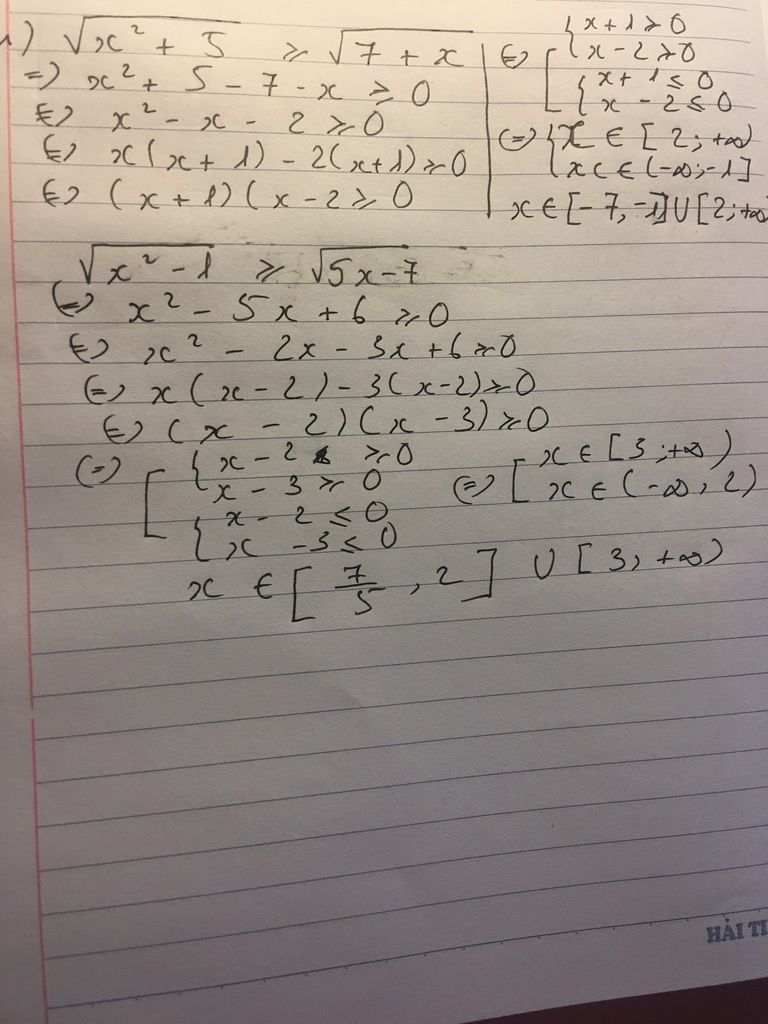 1) √(x² + 5) ≥ √(7 + x)
=) x² + 5 - 7 - x ≥ 0
(=) x² - x - 2 ≥ 0
(=) x(x + 1) - 2(x+1) ≥ 0
(=) (x + 1)(x - 2 ≥ 0
(=) [ { x + 1 ≥ 0
x - 2 ≥ 0
{ x + 1 ≤ 0
x - 2 ≤ 0
(=) { x ∈ [2; +∞)
x ∈ (-∞; -1]
x ∈ [-7, -1] ∪ [2; +∞
√(x² - 1) ≥ √(5x - 7)
(=) x² - 5x + 6 ≥ 0
(=) x² - 2x - 3x + 6 ≥ 0
(=) x(x - 2) - 3(x - 2) ≥ 0
(=) (x - 2)(x - 3) ≥ 0
(=) [ { x - 2 ≥ 0
x - 3 ≥ 0
{ x - 2 ≤ 0
x - 3 ≤ 0
(=) [ x ∈ [3; +∞)
x ∈ (-∞, 2)
x ∈ [7/5, 2] ∪ [3; +∞)
HẢI TI